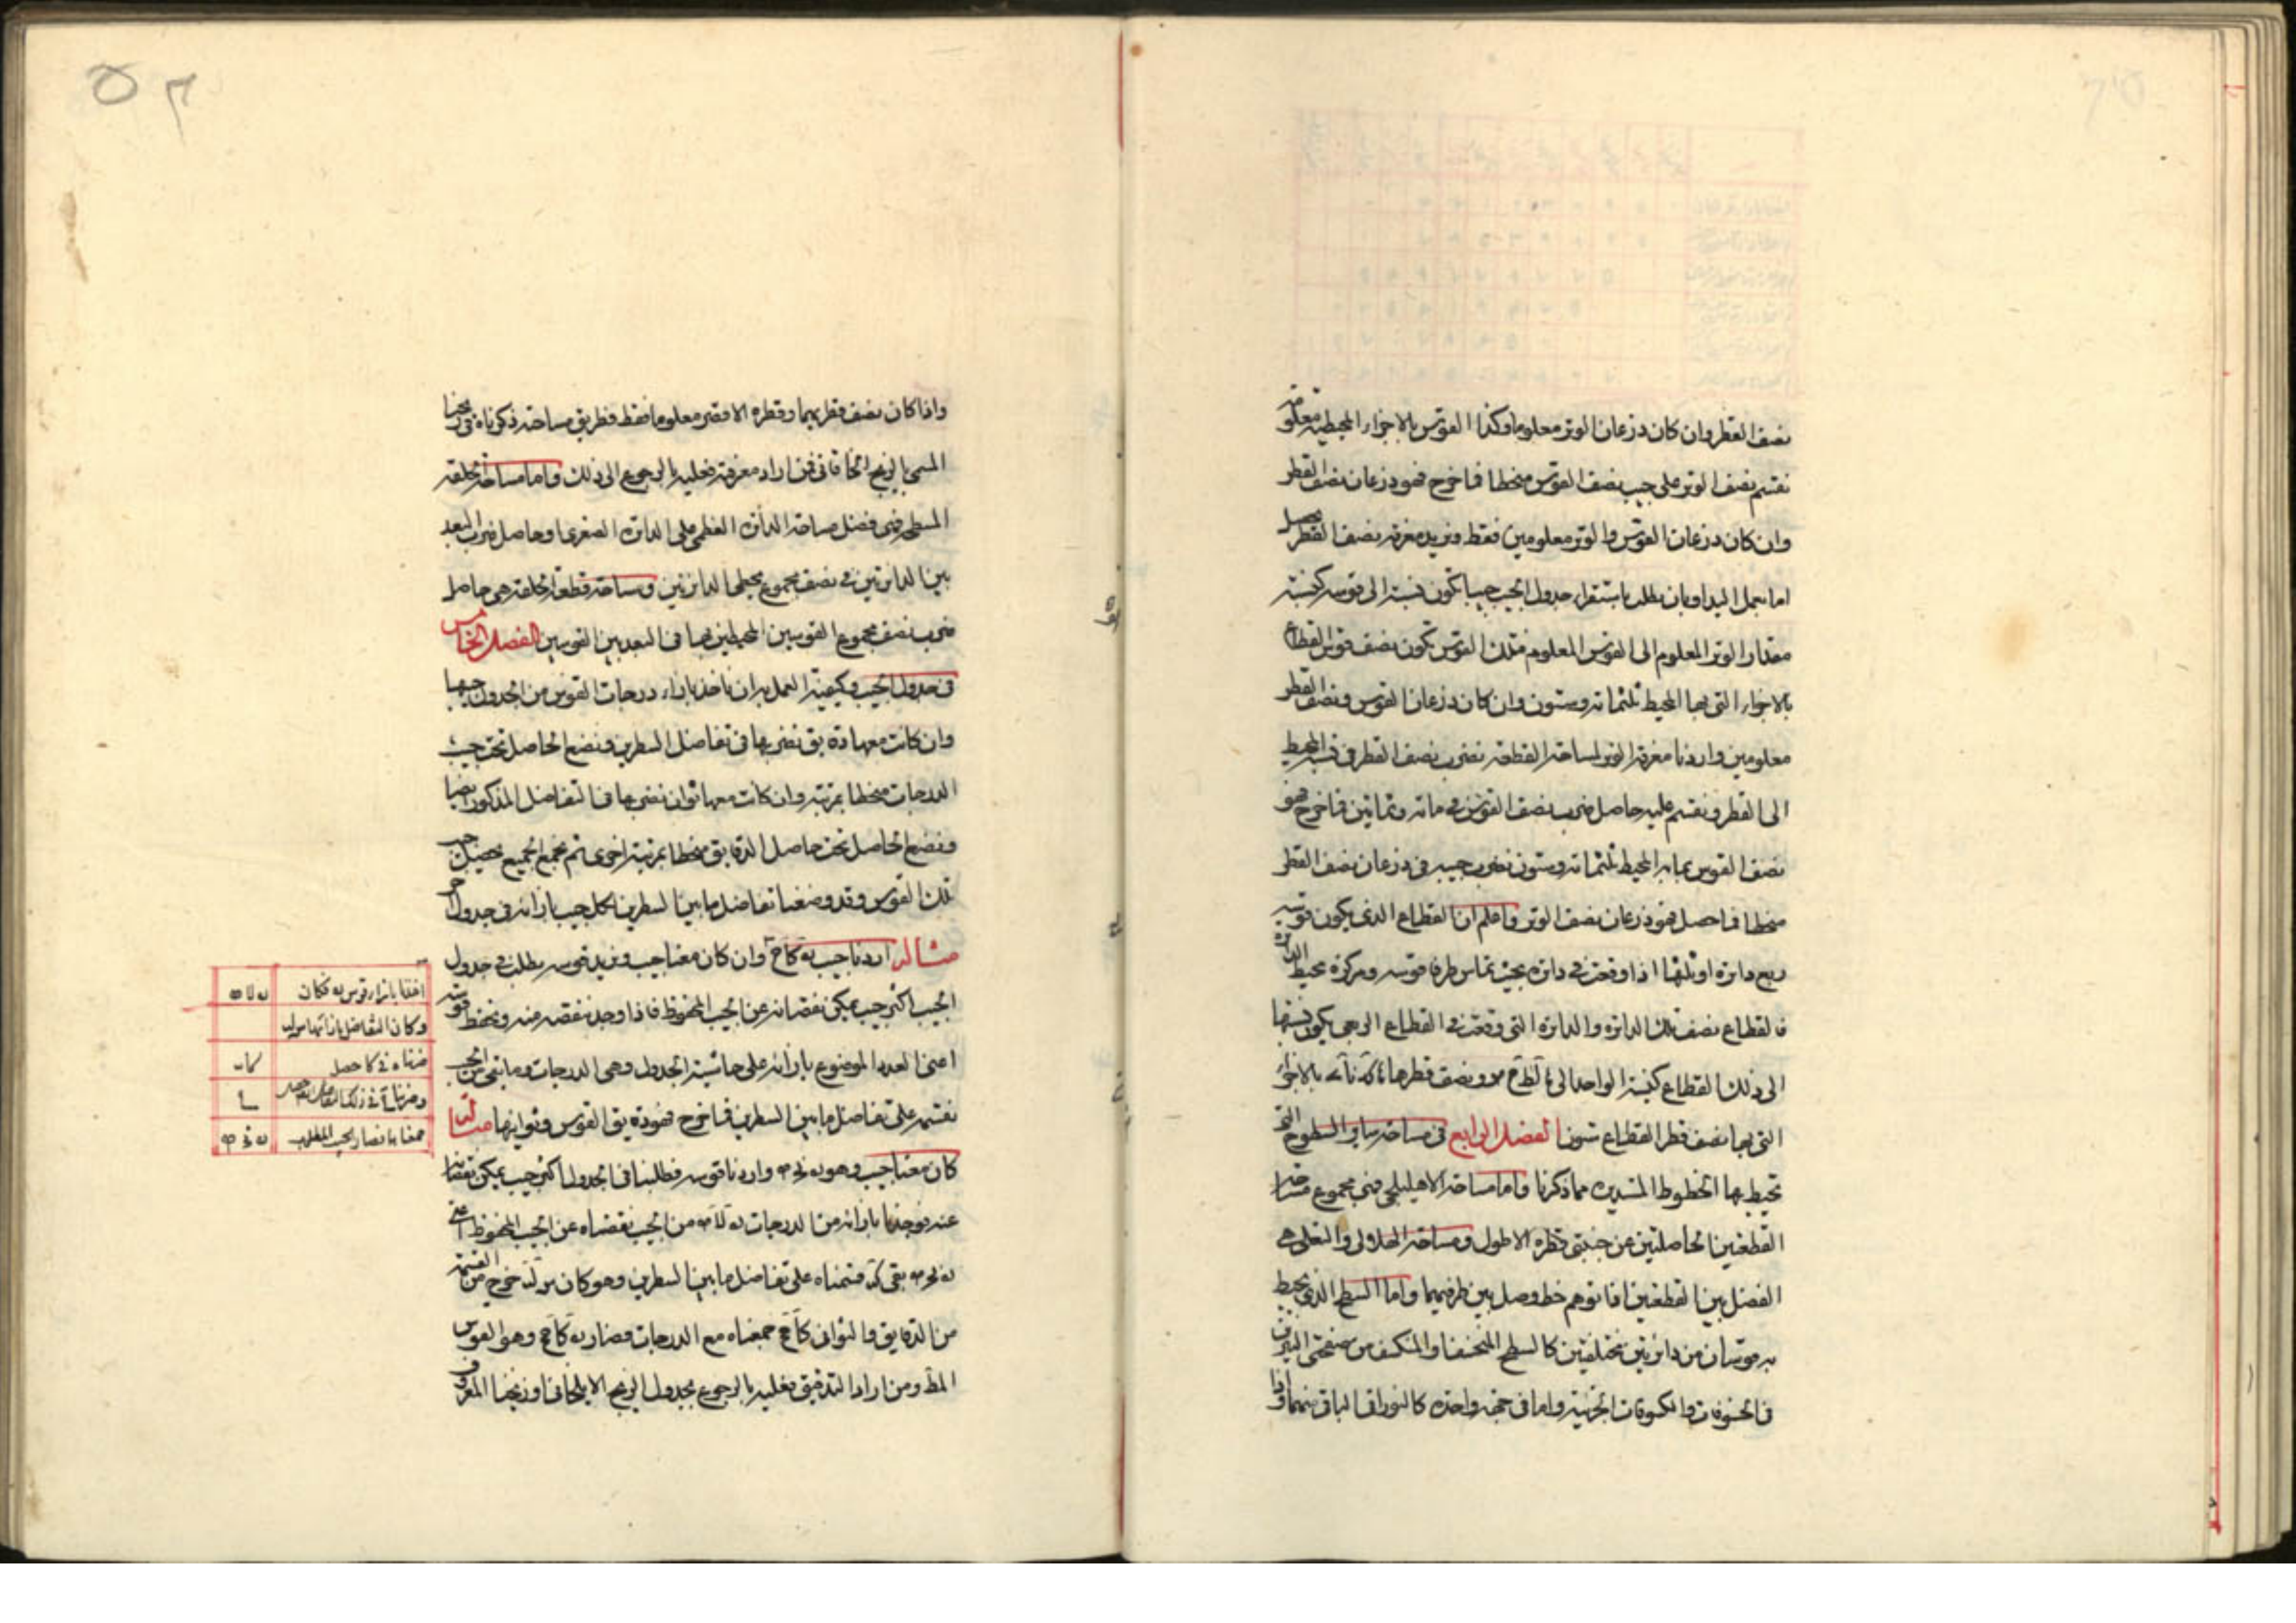 نصف القطر وان كان ذرعان الوتر معلوما وكذا القوس بالاجزاء المحيطية معلومة
نقسم نصف الوتر على جيب نصف القوس منحطا فما خرج فهو ذرعان نصف القطر
وان كان ذرعان القوس والوتر معلومين فقط ونريد معرفة نصف القطر
اما بعمل اليد او بان نطلب باستقراء جدول الجيب جيبا تكون نسبته الى قوسه كنسبة
مقدار الوتر المعلوم الى القوس المعلوم فتلك القوس تكون نصف قوس القطاع
بالاجزاء التي بها المحيط ثلثمائة وستون وان كان ذرعان القوس ونصف القطر
معلومين واردنا معرفة الوتر لمساحة القطعة نضرب نصف القطر في نسبة المحيط
الى القطر ونقسم عليه حاصل ضرب نصف القوس في مائة وثمانين فما خرج فهو
نصف القوس بما به المحيط ثلثمائة وستون نضرب جيبه في ذرعان نصف القطر
منحطا فما حصل فهو ذرعان نصف الوتر واعلم ان القطاع الذي يكون قوسه
ربع دائرة او ثلثها اذا وقعت في دائرة بحيث تماس طرفا قوسه ومركزه محيط الدائرة
فالقطاع نصف تلك الدائرة والدائرة التي وقعت في القطاع الربعي يكون نسبتها
الى ذلك القطاع كنسبة الواحد الى ونصف قطرها بالاجزاء
التي بها نصف قطر القطاع ستون الفصل الرابع في مساحة سائر السطوح التي
تحيط بها الخطوط المستديرة مما ذكرنا واما مساحة الاهليلجي فهي مجموع مساحة
القطعتين الحاصلتين عن جنبتي قطره الاطول ومساحة الهلالي والنعلي هي
الفضل بين القطعتين اذا توهم خط وصل بين طرفيهما واما السطح الذي يحيط
به قوسان من دائرتين مختلفتين كالسطح المنخسف او المنكسف من صفحتي النيرين
في الخسوفات والكسوفات الجزئية واما في جهة واحدة كالنوراني الباقي منهما
واذا كان نصف قطريهما وقطره الاقصر معلوما فقط فطريق مساحته ذكرناه في زيجنا
المسمى بالزيج الخاقاني فمن اراد معرفته فعليه بالرجوع الى ذلك واما مساحة الحلقة
المسطح فهي فضل مساحة الدائرة العظمى على الدائرة الصغرى او حاصل ضرب البعد
بين الدائرتين في نصف مجموع محيطي الدائرتين ومساحة قطعة الحلقة هي حاصل
ضرب نصف مجموع القوسين المحيطين بها في البعد بين القوسين الفصل الخامس
في جدول الجيب وكيفية العمل به ان ناخذ بازاء درجات القوس من الجدول جيبها
وان كانت معها دقايق نضربها في تفاضل السطرين ونضع الحاصل تحت جيب
الدرجات منحطا بمرتبة وان كانت معها ثوان نضربها في التفاضل المذكور ايضا
ونضع الحاصل تحت حاصل الدقايق منحطا بمرتبة اخرى ثم نجمع الجميع فيحصل جيب
تلك القوس وقد وضعنا تفاضل ما بين السطرين لكل جيب بازائه في جدول اخر
مثاله اردنا جيب يه كا ح وان كان معنا جيب ونريد قوسه نطلب في جدول
الجيب اكثر جيب يمكن نقصانه عن الجيب المحفوظ فاذا وجد ننقصه منه ونحفظ قوسه
اعني العدد الموضوع بازائه على حاشية الجدول وهي الدرجات وما بقي من الجيب
نقسمه على تفاضل ما بين السطرين فما خرج فهو دقايق القوس وثوانيها مثاله
كان معنا جيب وهو واردنا قوسه فطلبنا في الجدول اكثر جيب يمكن نقصانه
عنه فوجدنا بازائه من الدرجات يه من الجيب نقصناه عن الجيب المحفوظ اعني
بقي قسمناه على تفاضل ما بين السطرين وهو كان خرج من القسمة
من الدقايق والثواني كا ح جمعناه مع الدرجات فصار يه كا ح وهو القوس
المط ومن اراد التدقيق فعليه بالرجوع بجدول الزيج الايلخاني او زيجنا المعروف
اخذنا بازاء قوس يه فكان
وكان التفاضل بازائها
ضربناه في كا حصل
وضربنا ح في ذلك التفاضل حصل
جمعناها فصار الجيب المطلوب